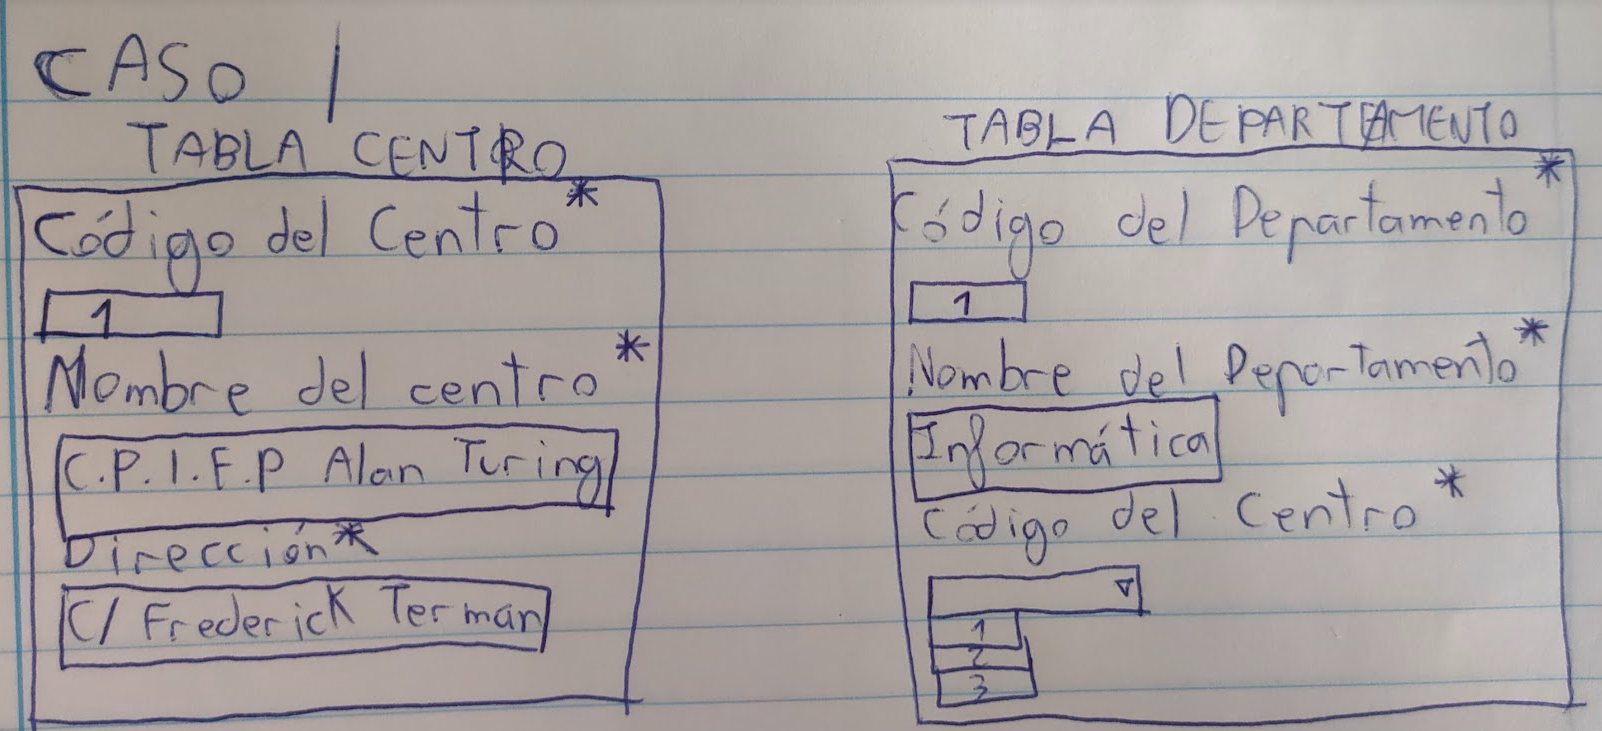 CASO 1
TABLA CENTRO
Código del Centro*
1
Nombre del centro*
C.P.I.F.P Alan Turing
Dirección*
C/ Frederick Terman
TABLA DEPARTAMENTO
Código del Departamento*
1
Nombre del Departamento*
Informática
Código del Centro*
1
2
3